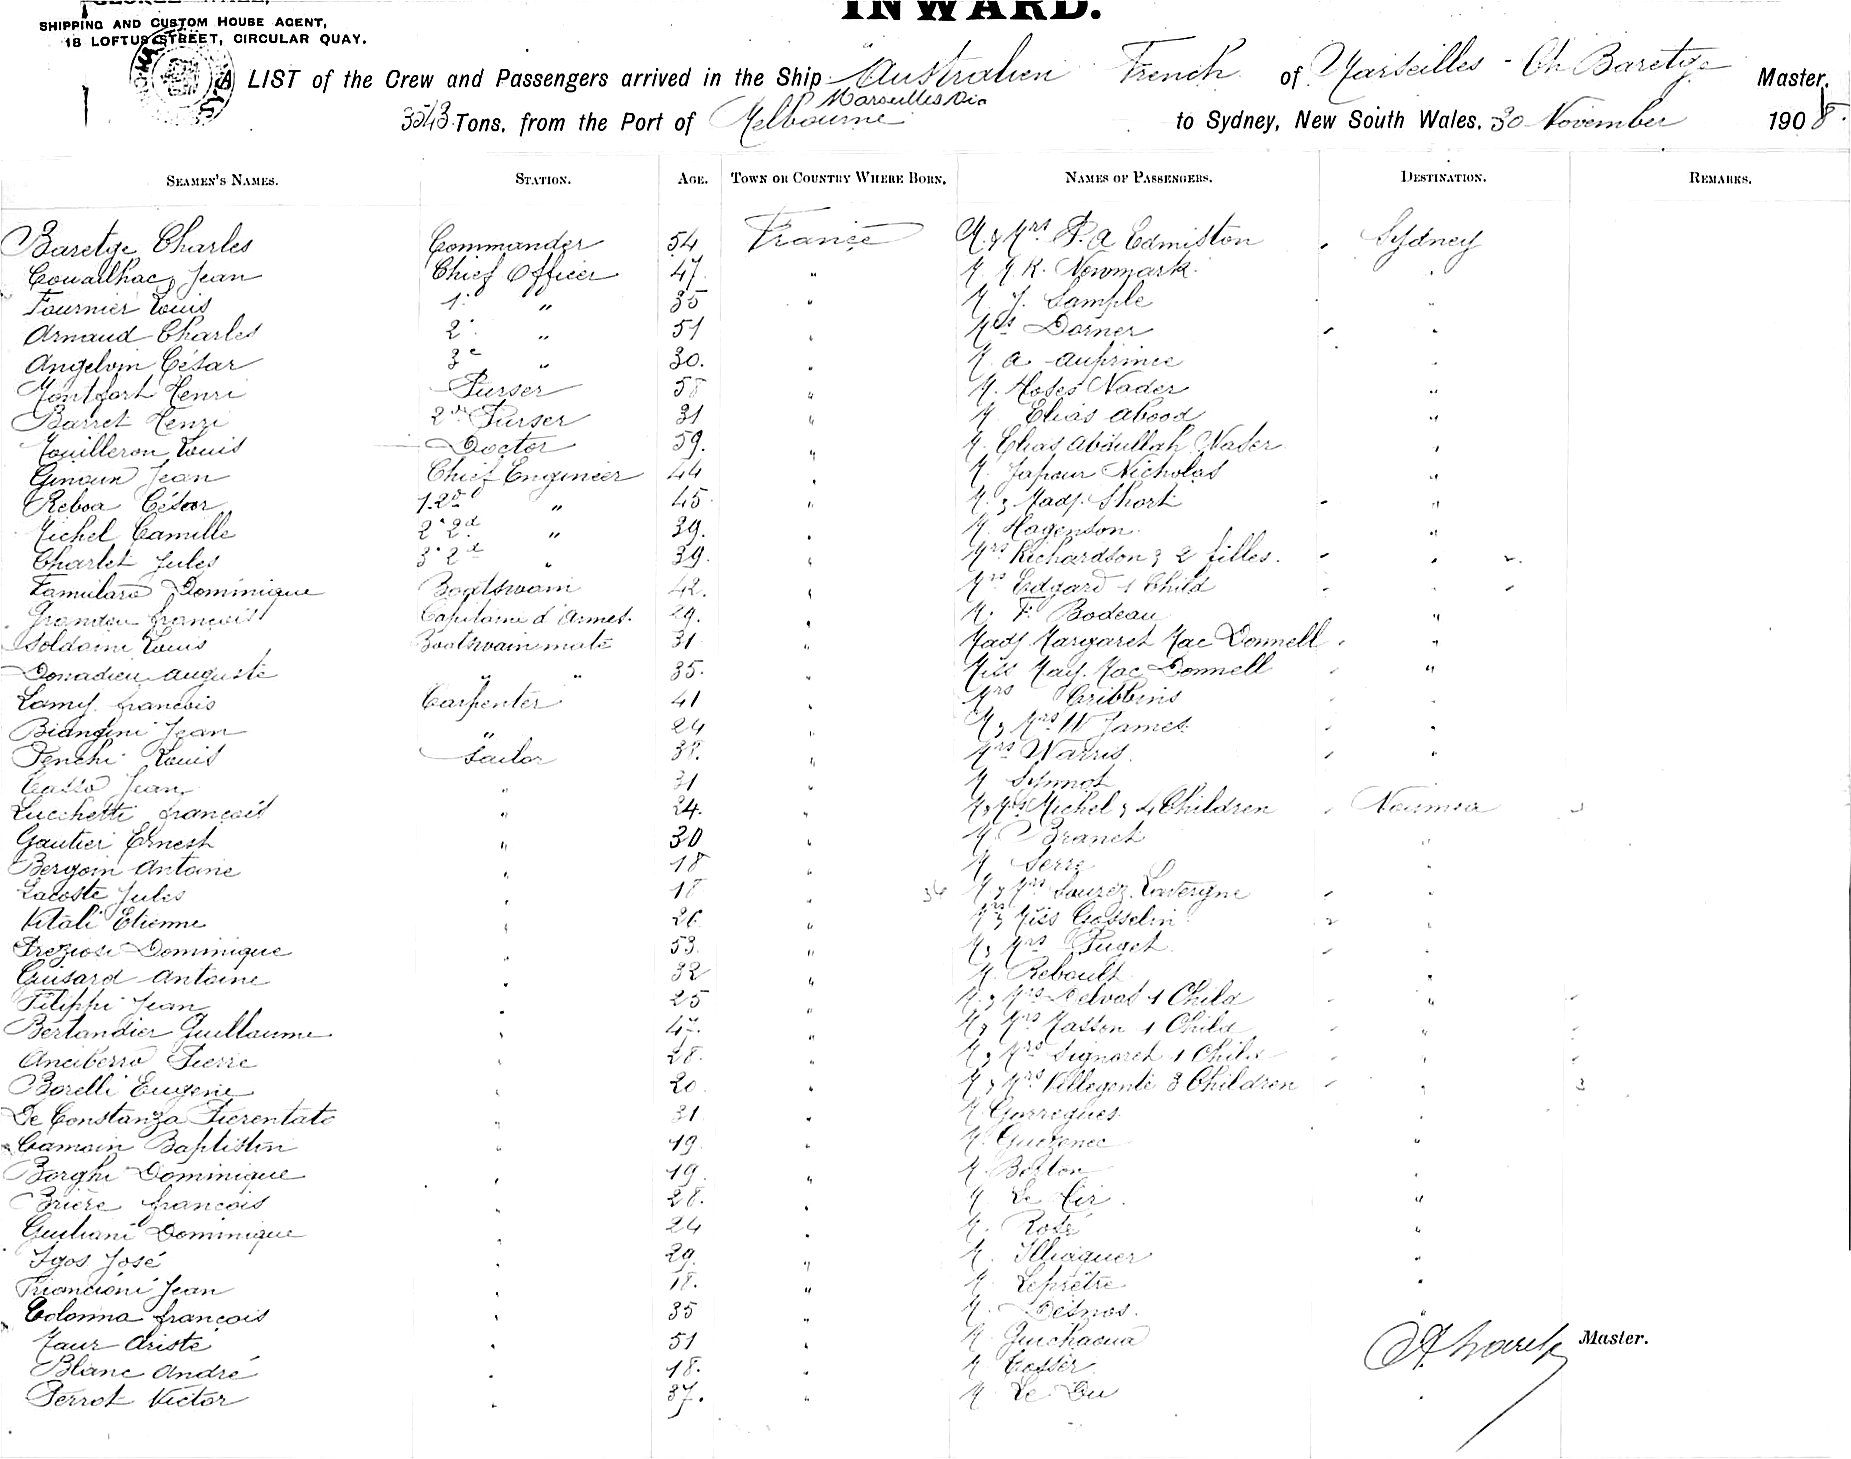 INWARD.
SHIPPING AND CUSTOM HOUSE AGENT,
18 LOFTUS STREET, CIRCULAR QUAY.
A LIST of the Crew and Passengers arrived in the Ship Australien French of Marseilles - Ch Baretge Master,
Marseilles Via
3543 Tons, from the Port of Melbourne to Sydney, New South Wales, 30 November 1908.
SEAMEN'S NAMES. STATION. AGE. TOWN OR COUNTRY WHERE BORN, NAMES OF PASSENGERS. DESTINATION. REMARKS.
Baretge Charles Commander 54 France M. & Mrs P. A Edmiston Sydney
Couailhac, Jean Chief Officer 47. " M Newmark. "
Fournier Louis 1. " 35 " M J. Sample "
Arnaud Charles 2. " 51 " Mrs Dorner "
Angelvin César 3e " 30. " M A Auprince "
Montfort Henri Purser 58 " M. Moses Nader "
Barret Henri 2d Purser 31 " M Elias Abood "
Mouilleron Louis Doctor 59. " M. Elias Abdullah Nader "
Ginoun Jean Chief Engineer 44 " M. Japour Nicholas "
Reboa César 1.2d " 45. " M. & Mad. Short "
Michel Camille 2.2d " 39. " M. Hagendon. "
Charlet Jules 3.2d " 39. " Mrs Richardson & 2 filles.
Famulara Dominique Boatswain 42. " Mrs Edgard 1 Child
François Capitaine d'Armes. 29. " M. F. Bodeau "
Soldaini Louis Boatswain mate 31 " Mad. Margaret Mac Donnell "
Donadieu Auguste " " 35. " Miss May. Mac Donnell "
Lamy. François Carpenter 41 " Mrs Cribbins "
Biangini Jean " 24 " M & Mrs W James "
Louis Sailor " Mrs Warris. "
Casso Jean " 31 " M Synnot "
Lucchetti François " 24. " M & Mrs Michel & 4 Children Noumea
Gautier Ernest " 30 " M. Branch "
Bergoin Antoine " 18 " M Serre "
Lacoste Jules " 18 " M & Mrs Lavergne "
Vitali Etienne " 26 " Mrs & Miss Gosselin "
Preziosi Dominique " 53. " M & Mrs Puget. "
Guisard Antoine " 32 " M. Reboult "
Filippi Jean " 25 " M. & Mrs Delvas 1 Child "
Bertandier Guillaume " 47. " M & Mrs Masson 1 Child "
Anciberro Pierre " 28. " M & Mrs Signoret 1 Child "
Borelli Eugene " 20 " M & Mrs Villegente 3 Children "
De Constanza Fierentato " 31 " M Garregues "
Camoin Baptistin " 19. " M. Guezenec "
Borghi Dominique " 19. " M Boston "
Brière François " 28. " M Le Hir. "
Giuliani Dominique " 24 " M. Rosé "
Igos José " 29. " M. "
Jean " 18. " M. Leprêtre "
Colonna François " 35 " M. Desmos. "
Maur Ariste " 51 " M Master.
Blanc André " 18. " M
Perrot Victor " 37. " M Le Du "